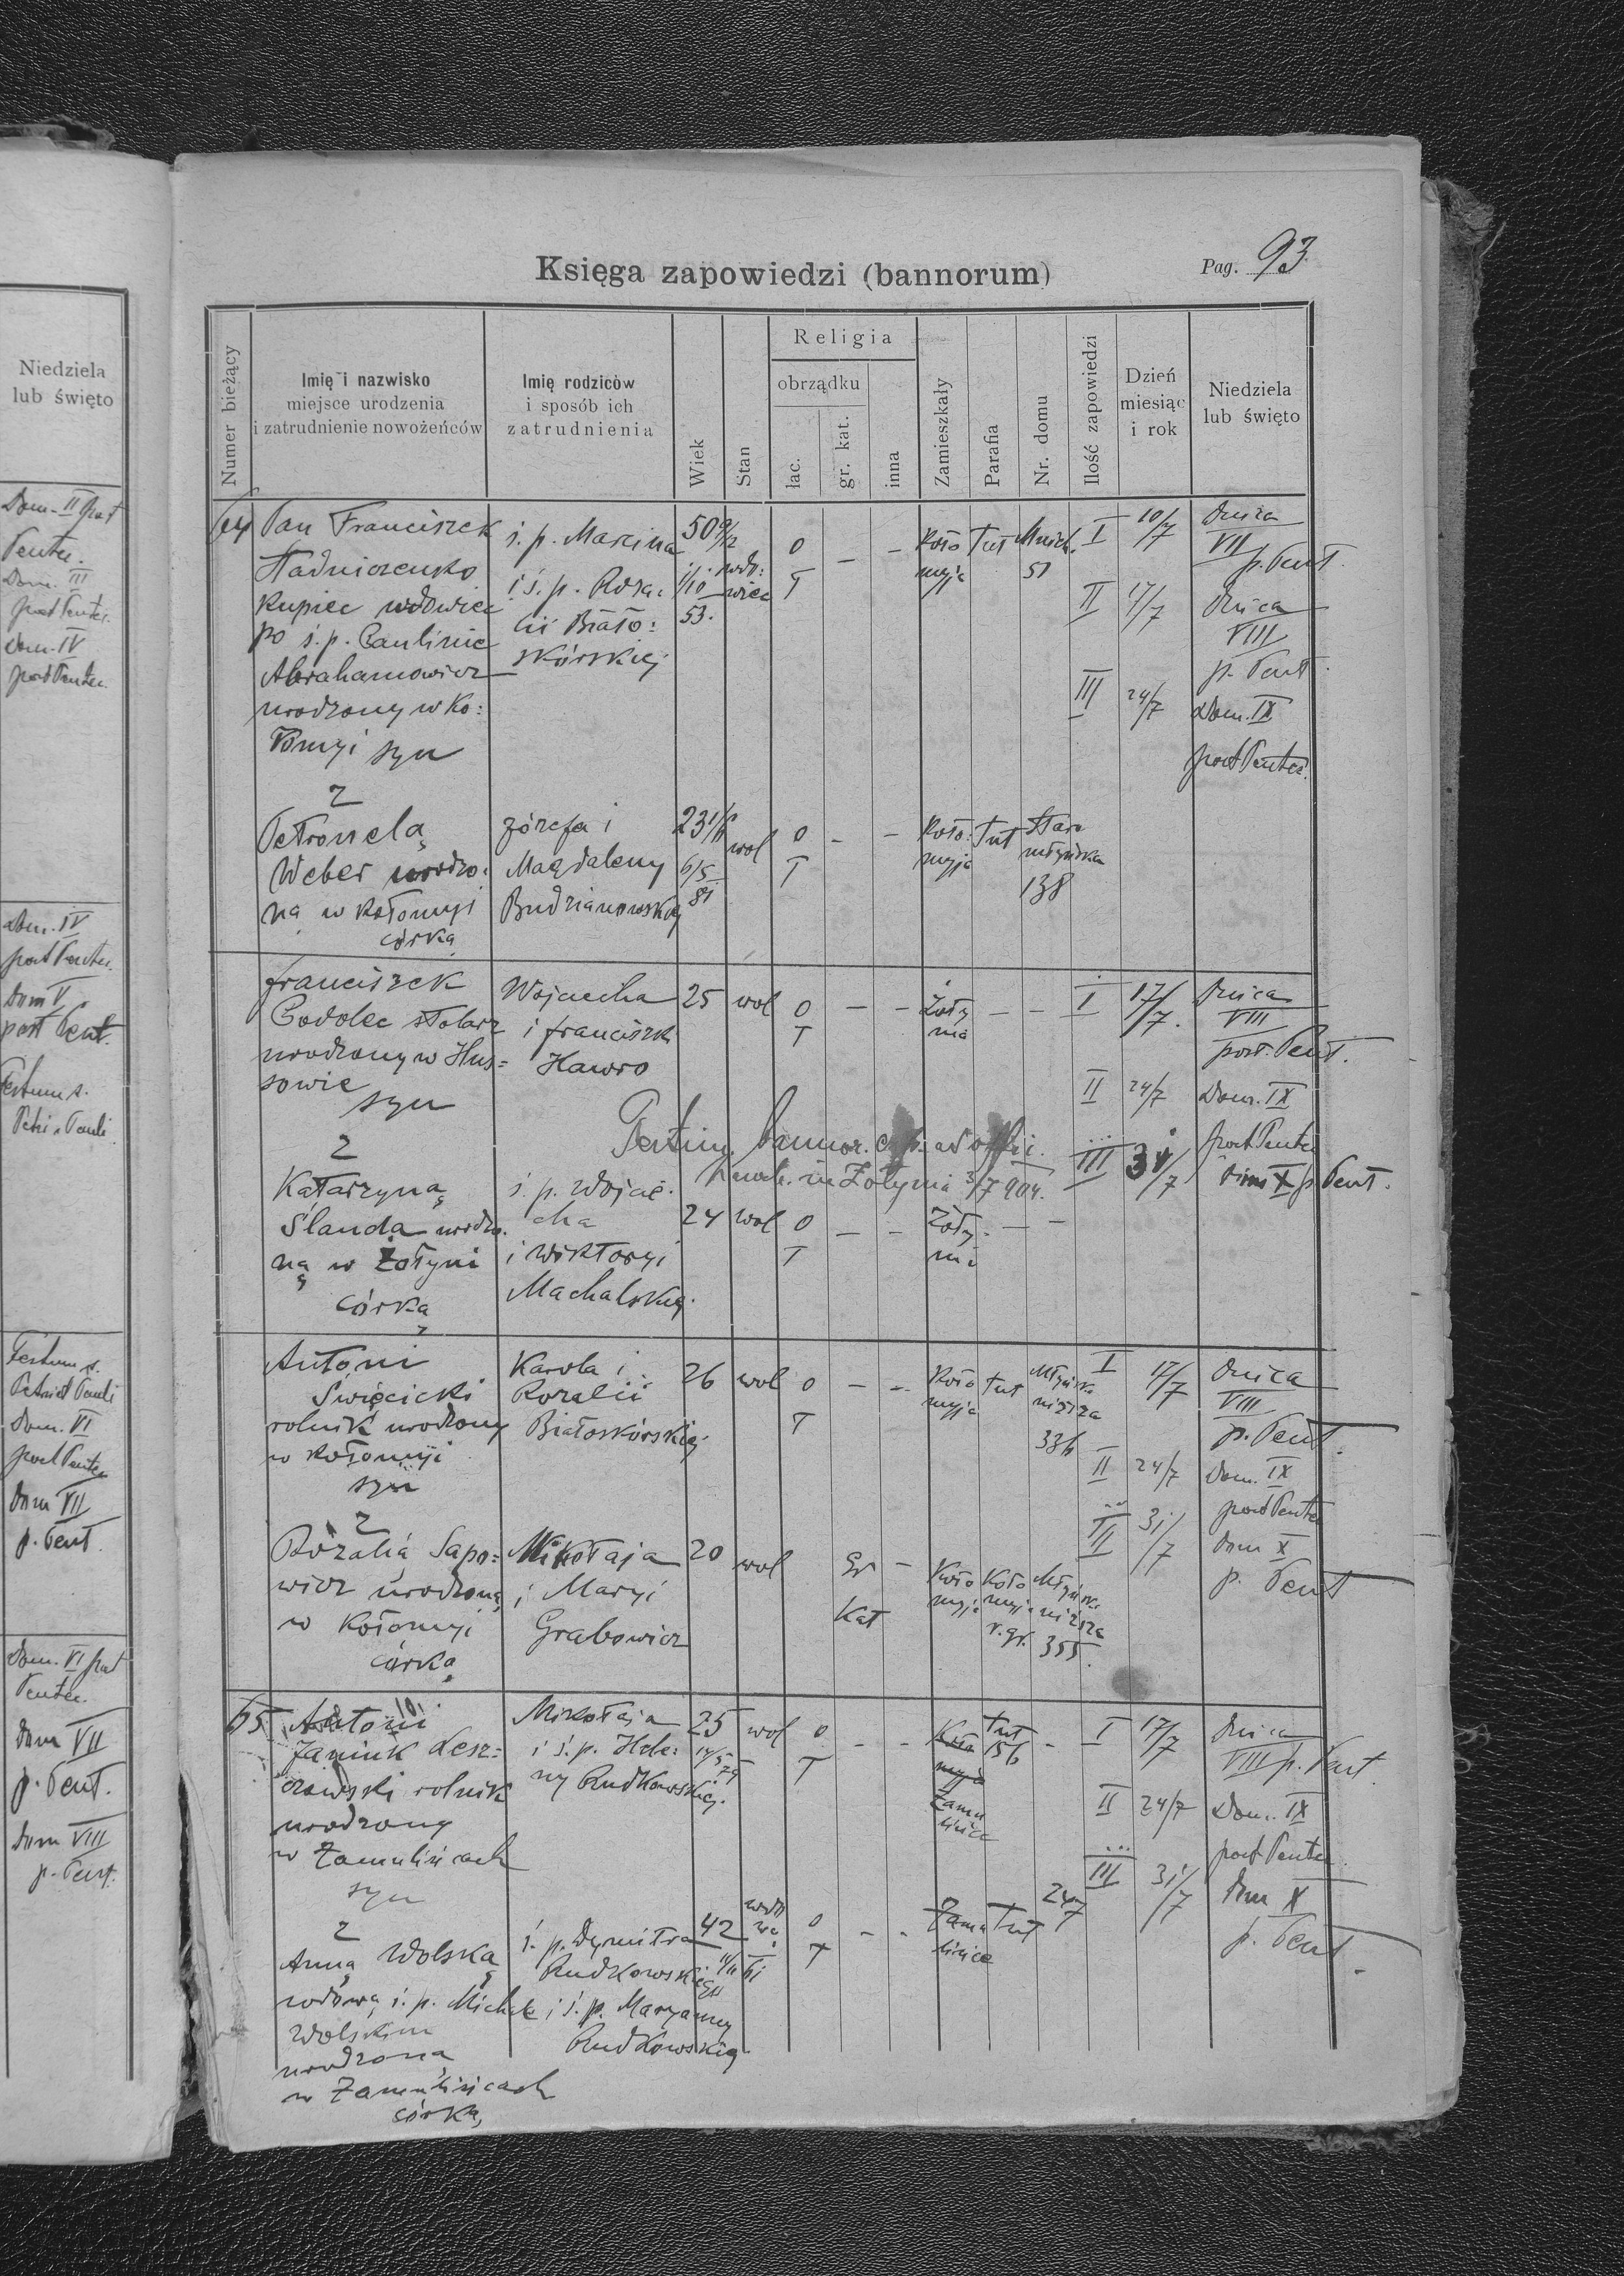 Niedziela
lub święto
Dom. II post
Pentec.
Dom. III
post Pentec.
Dom. IV
post Pentec.
Dom. IV
post Pentec.
Dom V
post Pent.
Festum s.
Petri Pauli
Festum s.
Petri et Pauli
Dom. VI
post Pentec
Dom VII
p. Pent.
Dom. VI post
Pentec.
Dom VII
p. Pent.
Dom VIII
p. Pent.
Księga zapowiedzi (bannorum)
Pag. 93
Numer bieżący
Imię i nazwisko
miejsce urodzenia
i zatrudnienie nowożeńców
Imię rodziców
i sposób ich
zatrudnienia
Wiek
Stan
Religia
obrządku
łac.
gr. kat.
inna
Zamieszkały
Parafia
Nr. domu
Ilość zapowiedzi
Dzień
miesiąc
i rok
Niedziela
lub święto
64 Pan Franciszek
kupiec wdowiec
po ś. p. Paulinie
Abrahamowicz
urodzony w Ko:
łomyi syn
ś. p. Marcina
i ś. p. Roza:
lii Biało:
skórskiej
50 9/12
1/10
53.
wdo:
wiec
O
T
—
—
Koło
myja
Tut
Mnich.
51
I 10/7 Dnica
VII
p. Pent.
II 17/7 Dnica
VIII
p. Pent.
III 24/7 Dom. IX
post Pentec.
z
Petronelą
Weber urodzo:
ną w Kołomyi
córką
Józefa i
Magdaleny
Budzianowskiej
6/5
81
wol
O
T
-
—
Koło:
myja
Tut
Staro
młyńska
138
Franciszek
stolarz
urodzony w Hus=
sowie
syn
Wojciecha
i Franciszk
Hawro
25
wol
O
T
—
—
Żoły
nia
—
—
I 17/7. Dnica
VIII
post. Pent.
II 24/7 Dom. IX
post Pentec
III 31/7 Dom X p Pent.
Testim. bannor.
in Żołynia 904.
z
Katarzyną
Slanda urodzo.
ną w Żołyni
córką
ś. p. Wojcie.
cha
i Wiktoryi
Machalskiej.
24
wol
O
T
—
-
Żoły
nia
—
—
Antoni
Święcicki
rolnik urodzony
w Kołomyi
syn
Karola i
Rozalii
Białoskórskiej
26
wol
O
T
—
—
Koło
myja
Tut
Młyńska
niższa
336
I 17/7 Dnica
VIII
p. Pent.
II 24/7 Dom. IX
post Pentec
III 31/7 Dom X
p. Pent
z
Rozalią Sapo=
wicz urodzoną
w Kołomyi
córką
Mikołaja
i Maryi
Grabowicz
20
wol
Gr
Kat
-
Koło
myja
Koło
myja
r. gr.
Młyńska
niższa
355.
65 Antoni
Janiuk Lesz=
czowski rolnik
urodzony
w Zamulińcach
syn
Mikołaja
i ś. p. Hele:
ny Rudkowskiej.
25
wol
O
T
-
-
Koło
myja
Zamu
lińce
Tut
156
-
I 17/7 Dnica
VIII p. Pent.
II 24/7 Dom. IX
post Pentec.
III 31/7 Dom X
p. Pent
z
Anną Wolską
wdową ś. p. Michale
Wolskim
urodzoną
w Zamulińcach
córką
ś. p. Dymitra
Rudkowskiego
i ś. p. Maryanny
Rudkowskiej
42
wdo
wa
O
T
-
-
Zamu
lińce
Tut
247